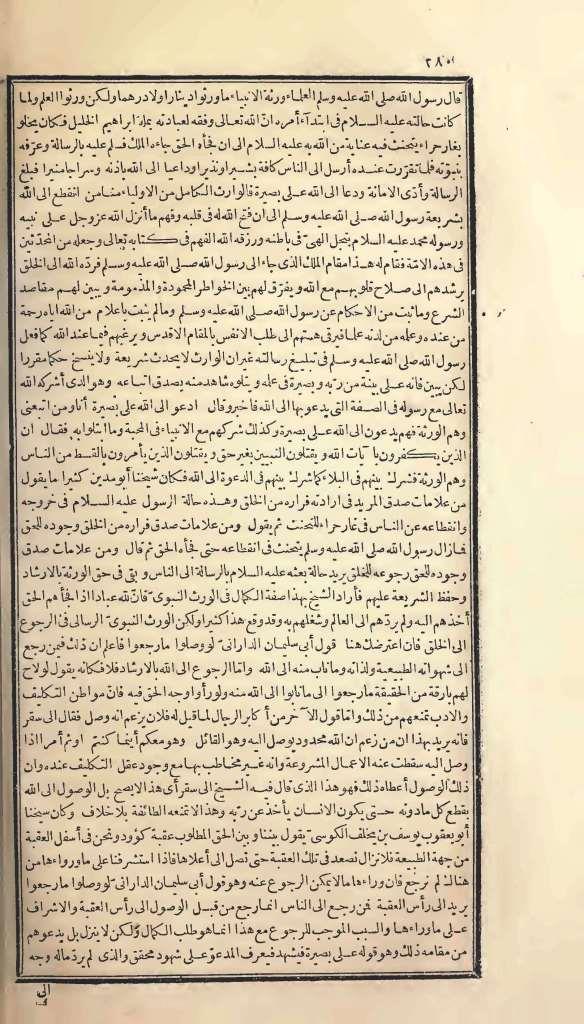 ٢٨٥
قال رسول الله صلى الله عليه وسلم العلماء ورثة الانبياء ما ورثوا دينارا ولا درهما ولكن ورثوا العلم ولما
كانت حالته عليه السلام فى ابتداء أمره انّ الله تعالى وفقه لعبادته بملة ابراهيم الخليل فكان يخلو
بغار حراء يتحنث فيه عناية من الله به عليه السلام الى ان فجأه الحق جاءه الملك فسلم عليه بالرسالة وعرّفه
بنبوّته فلما تقرّرت عنده أرسل الى الناس كافة بشيرا ونذيرا وداعيا الى الله باذنه وسراجا منيرا فبلغ
الرسالة وأدّى الامانة ودعا الى الله على بصيرة فالوارث الكامل من الاولياء منا من انقطع الى الله
بشريعة رسول الله صلى الله عليه وسلم الى ان فتح الله له فى قلبه وفهم ما أنزل الله عز وجل على نبيه
ورسوله محمد عليه السلام بتجل الهىّ فى باطنه ورزقه الله الفهم فى كتابه تعالى وجعله من المحدّثين
فى هذه الامّة فقام له هذا مقام الملك الذى جاء الى رسول الله صلى الله عليه وسلم فردّه الله الى الخلق
يرشدهم الى صلاح قلوبهم مع الله ويفرّق لهم بين الخواطر المحمودة والمذمومة ويبين لهم مقاصد
الشرع وما ثبت من الاحكام عن رسول الله صلى الله عليه وسلم وما لم يثبت باعلام من الله اياه رحمة
من عنده وعلمه من لدنه علما فيرقى همتهم الى طلب الانفس بالمقام الاقدس ويرغبهم فيما عند الله كما فعل
رسول الله صلى الله عليه وسلم فى تبليغ رسالته غير ان الوارث لا يحدث شريعة ولا ينسخ حكما مقررا
لكن يبين فانه على بينة من ربه وبصيرة فى علمه ويتلوه شاهد منه بصدق اتباعه وهو الذى أشركه الله
تعالى مع رسوله فى الصفة التى يدعو بها الى الله فاخبر وقال ادعو الى الله على بصيرة أنا ومن اتبعنى
وهم الورثة فهم يدعون الى الله على بصيرة وكذلك شركهم مع الانبياء فى المحنة وما ابتلوا به فقال ان
الذين يكفرون بآيات الله ويقتلون النبيين بغير حق ويقتلون الذين يأمرون بالقسط من الناس
وهم الورثة فشرك بينهم فى البلاء كما شرك بينهم فى الدعوة الى الله فكان شيخنا أبو مدين كثيرا ما يقول
من علامات صدق المريد فى ارادته فراره من الخلق وهذه حالة الرسول عليه السلام فى خروجه
وانقطاعه عن الناس فى غار حراء للتحنث ثم يقول ومن علامات صدق فراره من الخلق وجوده للحق
فما زال رسول الله صلى الله عليه وسلم يتحنث فى انقطاعه حتى فجأه الحق ثم قال ومن علامات صدق
وجوده للحق رجوعه للخلق يريد حالة بعثه عليه السلام بالرسالة الى الناس ويعنى فى حق الورثة بالارشاد
وحفظ الشريعة عليهم فأراد الشيخ بهذا صفة الكمال فى الورث النبوىّ فانّ لله عبادا اذا فجأهم الحق
أخذهم اليه ولم يردّهم الى العالم وشغلهم به وقد وقع هذا كثيرا ولكن الورث النبوىّ الرسالى فى الرجوع
الى الخلق فان اعترضك هنا قول أبى سليمان الدارانى لو وصلوا ما رجعوا فاعلم ان ذلك فيمن رجع
الى شهواته الطبيعية ولذاته وما تاب منه الى الله وامّا الرجوع الى الله بالارشاد فلا فكانه يقول لو لاح
لهم بارقة من الحقيقة ما رجعوا الى ما تابوا الى الله منه ولو رأوا وجه الحق فيه فانّ مواطن التكليف
والادب تمنعهم من ذلك وامّا قول الآخر من أكابر الرجال لما قيل له فلان يزعم انه وصل فقال الى سقر
فانه يريد بهذا ان من زعم ان الله محدود يوصل اليه وهو القائل وهو معكم أينما كنتم أو ثم أمر اذا
وصل اليه سقطت عنه الاعمال المشروعة وانه غير مخاطب بها مع وجود عقل التكليف عنده وان
ذلك الوصول أعطاه ذلك فهو هذا الذى قال فيه الشيخ الى سقر أى هذا لا يصح بل الوصول الى الله
يقطع كل ما دونه حتى يكون الانسان يأخذ عن ربه وهذا لا تمنعه الطائفة بلا خلاف وكان شيخنا
أبو يعقوب يوسف بن يخلف الكومىّ يقول بيننا وبين الحق المطلوب عقبة كؤود ونحن فى أسفل العقبة
من جهة الطبيعة فلا نزال نصعد فى تلك العقبة حتى نصل الى أعلاها فاذا استشرفنا على ما وراءها من
هناك لم نرجع فان وراءها ما لا يمكن الرجوع عنه وهو قول أبى سليمان الدارانى لو وصلوا ما رجعوا
يريد الى رأس العقبة فمن رجع الى الناس انما رجع من قبل الوصول الى رأس العقبة والاشراف
على ما وراءها والسبب الموجب للرجوع مع هذا انما هو طلب الكمال ولكن لا ينزل بل يدعوهم
من مقامه ذلك وهو قوله على بصيرة فيشهد فيعرف المدعوّ على شهود محقق والذى لم يردّ ماله وجه
الى